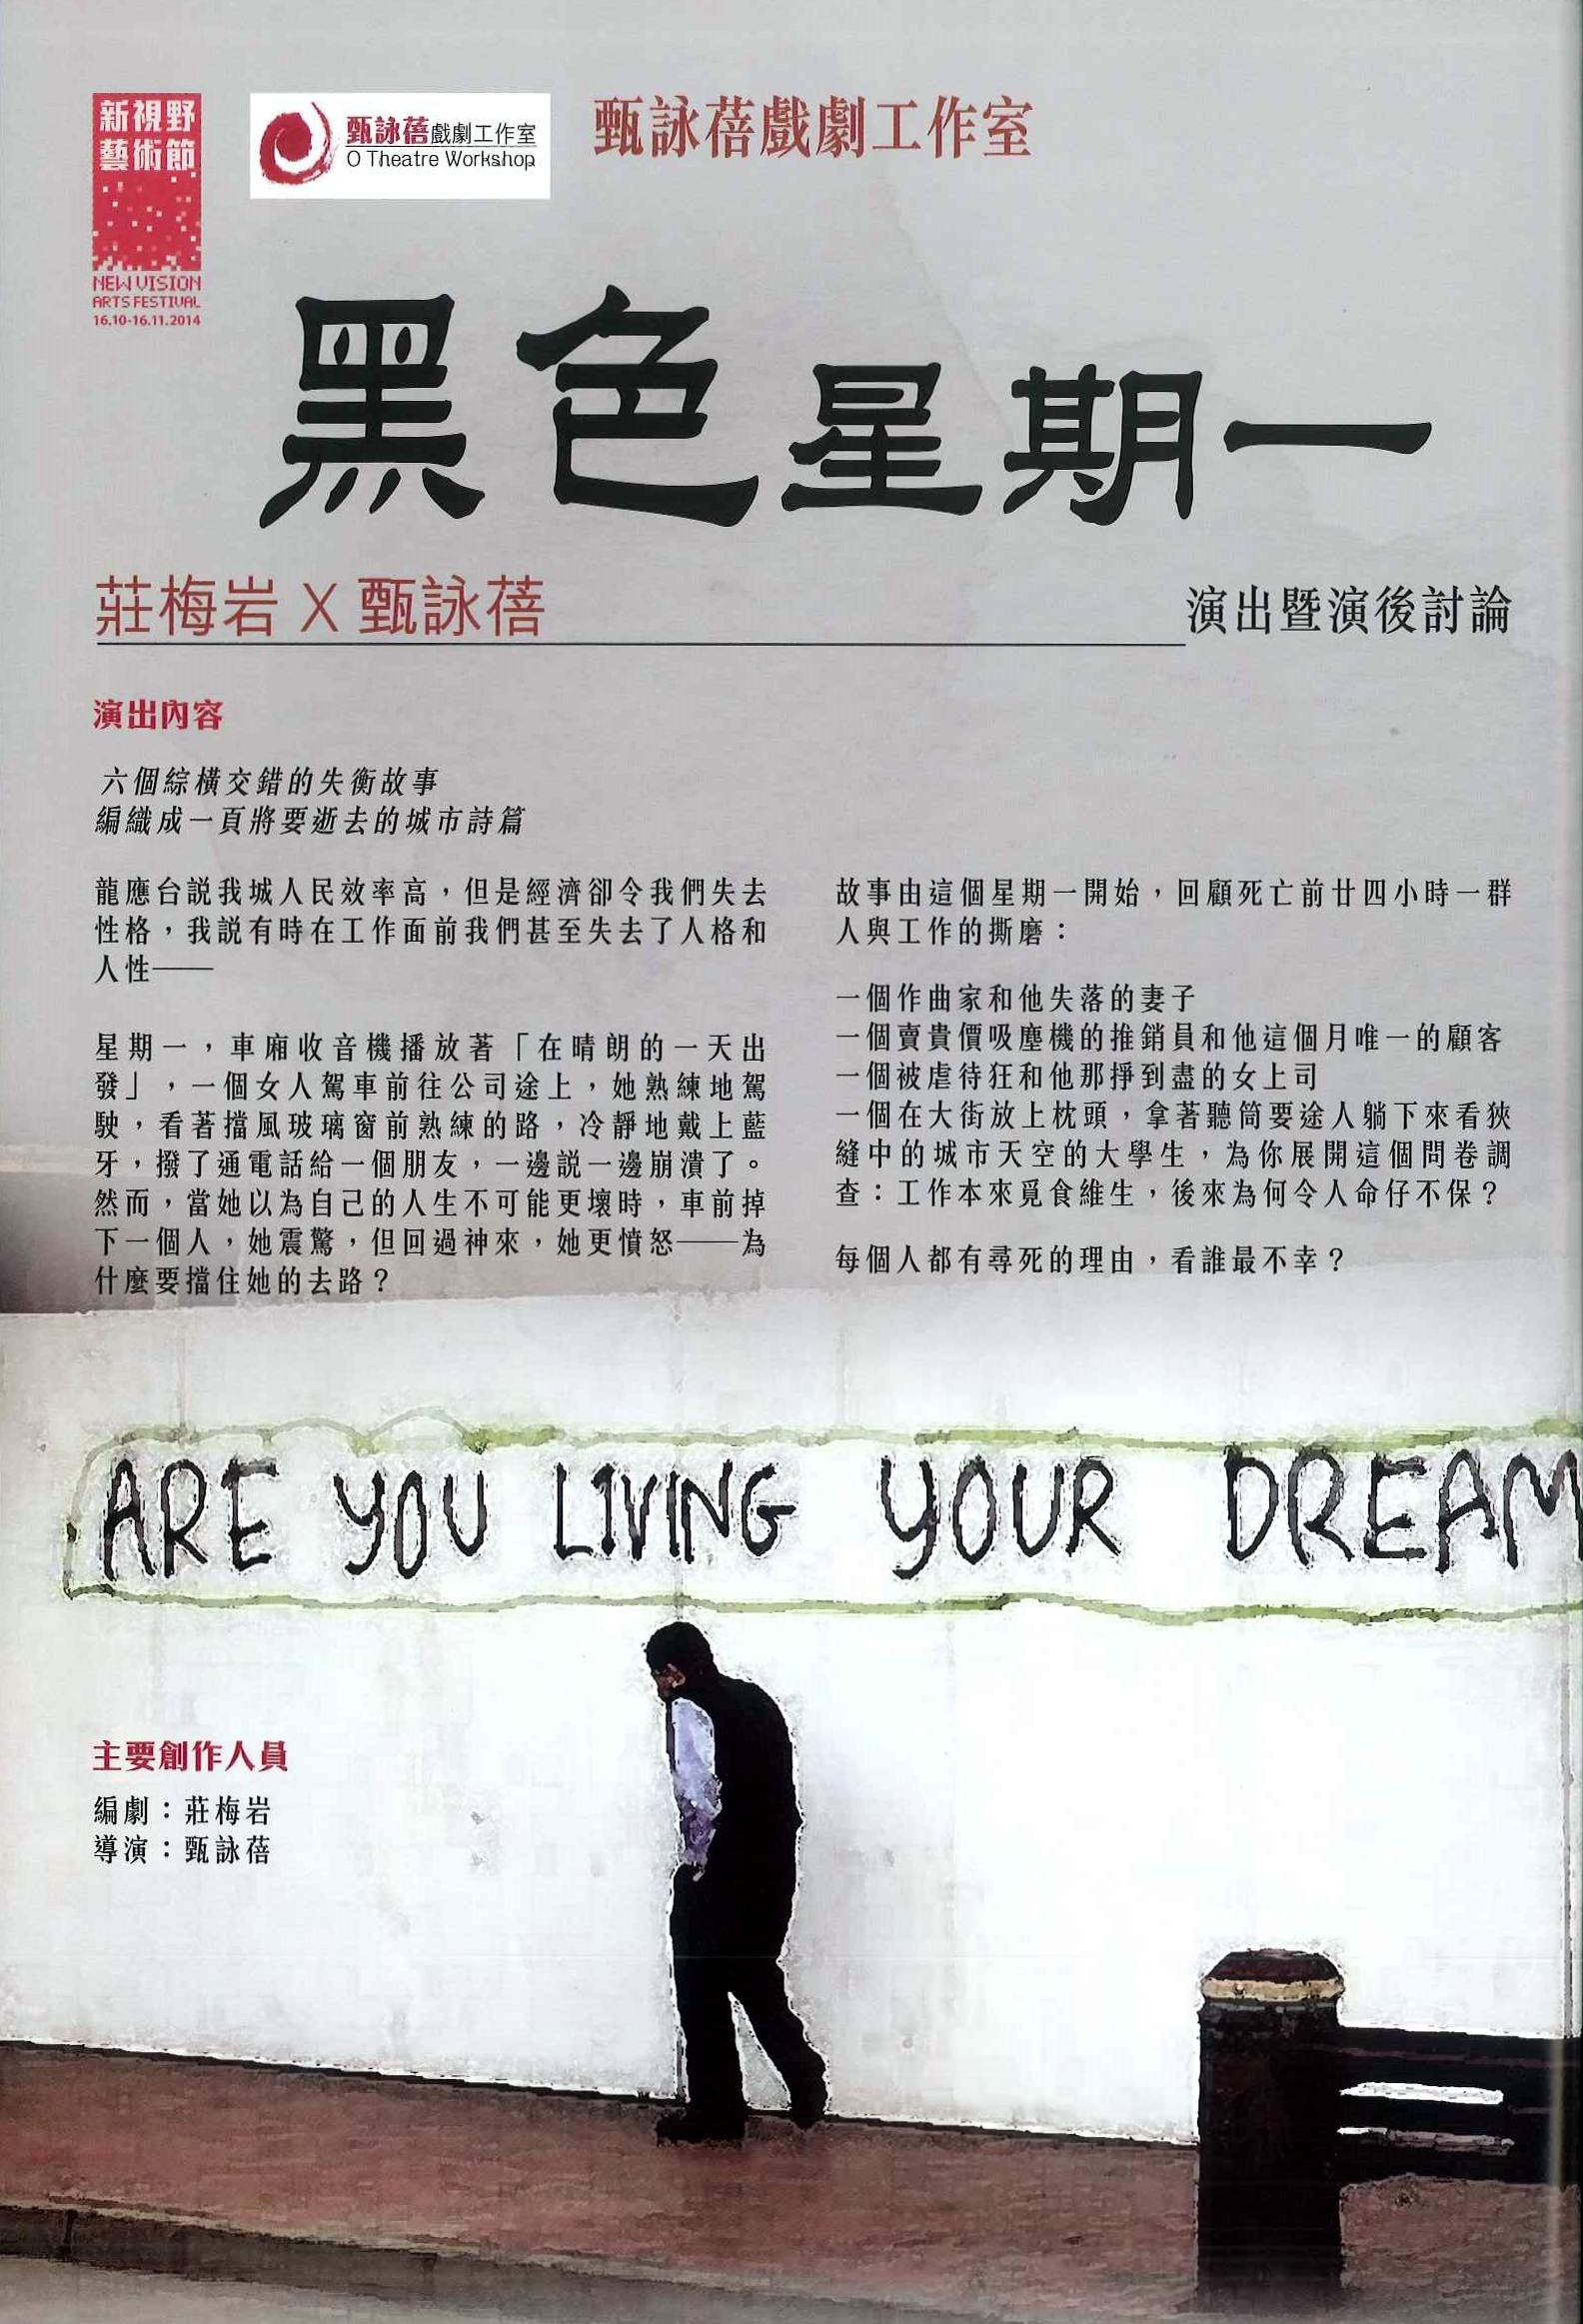 新視野
藝術節
NEW VISION
ARTS FESTIVAL
16.10-16.11.2014
甄詠蓓戲劇工作室
O Theatre Workshop
甄詠蓓戲劇工作室
黑色星期一
莊梅岩 X 甄詠蓓
演出暨演後討論
演出內容
六個綜橫交錯的失衡故事
編織成一頁將要逝去的城市詩篇
龍應台説我城人民效率高，但是經濟卻令我們失去
性格，我説有時在工作面前我們甚至失去了人格和
人性——
星期一，車廂收音機播放著「在晴朗的一天出
發」，一個女人駕車前往公司途上，她熟練地駕
駛，看著擋風玻璃窗前熟練的路，冷靜地戴上藍
牙，撥了通電話給一個朋友，一邊説一邊崩潰了。
然而，當她以為自己的人生不可能更壞時，車前掉
下一個人，她震驚，但回過神來，她更憤怒——為
什麼要擋住她的去路？
故事由這個星期一開始，回顧死亡前廿四小時一群
人與工作的撕磨：
一個作曲家和他失落的妻子
一個賣貴價吸塵機的推銷員和他這個月唯一的顧客
一個被虐待狂和他那掙到盡的女上司
一個在大街放上枕頭，拿著聽筒要途人躺下來看狹
縫中的城市天空的大學生，為你展開這個問卷調
查：工作本來覓食維生，後來為何令人命仔不保？
每個人都有尋死的理由，看誰最不幸？
ARE YOU LIVING YOUR DREAM
主要創作人員
編劇：莊梅岩
導演：甄詠蓓